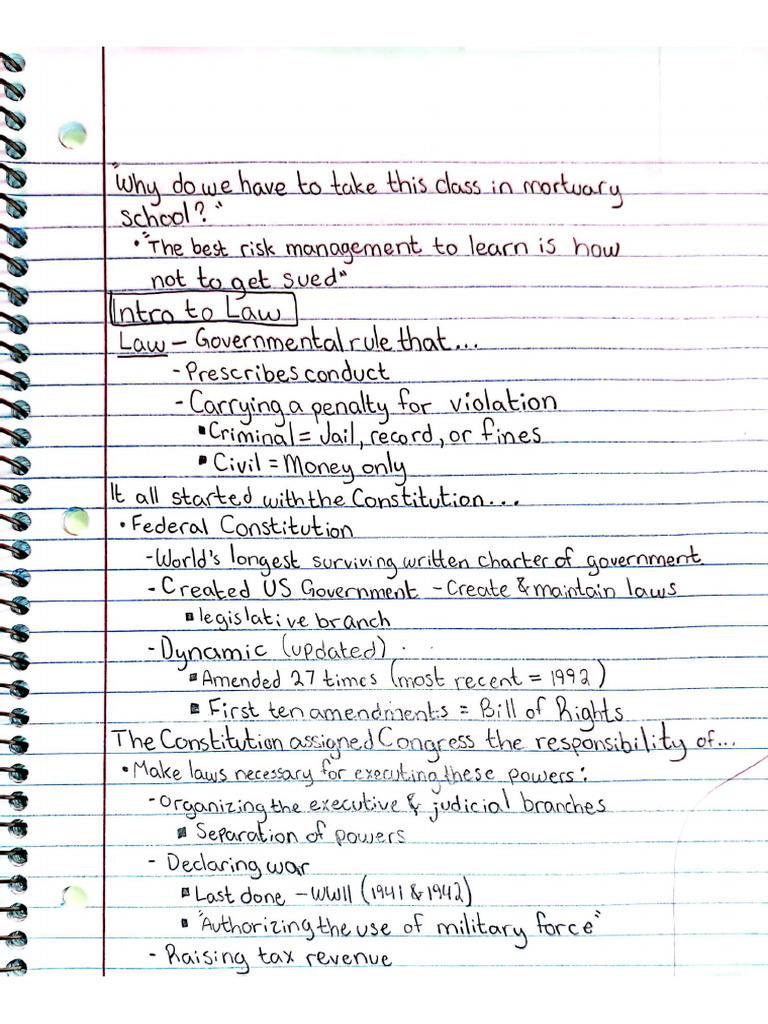 "Why do we have to take this class in mortuary
school?"
• "The best risk management to learn is how
not to get sued"
Intro to Law
Law – Governmental rule that...
- Prescribes conduct
- Carrying a penalty for violation
▪ Criminal = Jail, record, or fines
▪ Civil = Money only
It all started with the Constitution...
• Federal Constitution
- World's longest surviving written charter of government
- Created US Government - Create & maintain laws
▪ legislative branch
- Dynamic (updated)
▪ Amended 27 times (most recent = 1992)
▪ First ten amendments = Bill of Rights
The Constitution assigned Congress the responsibility of...
• Make laws necessary for executing these powers:
- Organizing the executive & judicial branches
▪ Separation of powers
- Declaring war
▪ Last done – WWII (1941 & 1942)
▪ "Authorizing the use of military force"
- Raising tax revenue